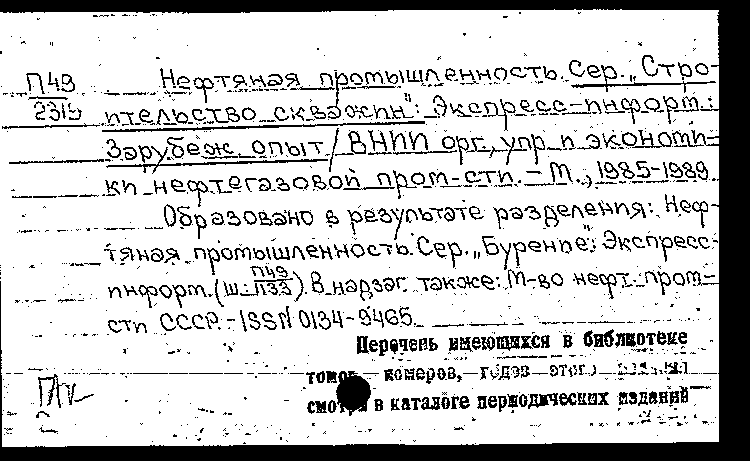 П49
2315
Нефтяная промышленность. Сер. „Строительство скважин": Экспресс-информ.:
Зарубеж. опыт / ВНИИ орг., упр. и экономики нефтегазовой пром-сти. – М., 1985-1989
Образовано в результате разделения: Нефтяная промышленность. Сер. „Бурение": Экспресс-
информ. (ш. П49/П33). В надзаг. также: М-во нефт. пром-
сти СССР. - ISSN 0134-9465
Перечень имеющихся в библиотеке
томов, номеров, годов этого
смотри в каталоге периодических изданий